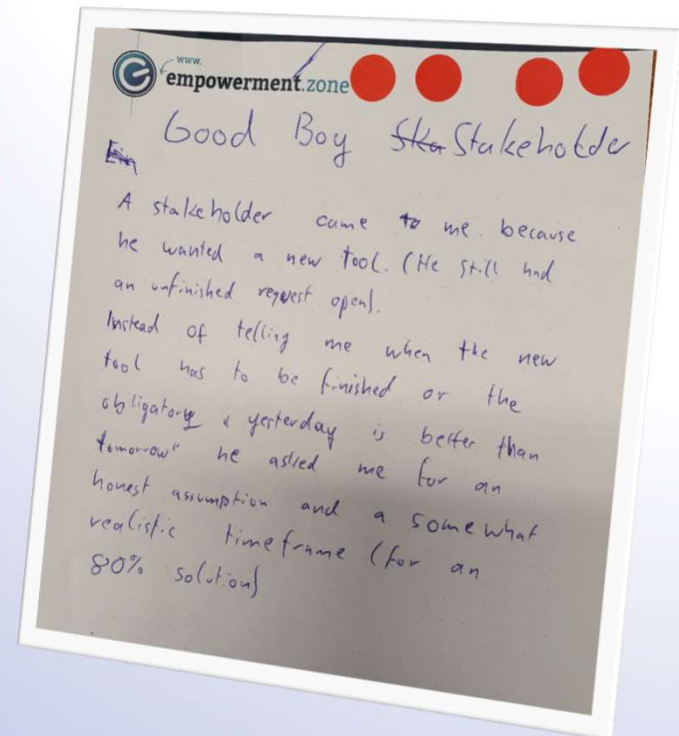 www.
empowerment.zone
Good Boy Ska Stakeholder
Ein
A stakeholder came to me because
he wanted a new tool. (He still had
an unfinished request open).
Instead of telling me when the new
tool has to be finished or the
obligatory "yesterday is better than
tomorrow" he asked me for an
honest assumption and a somewhat
realistic timeframe (for an
80% solution)